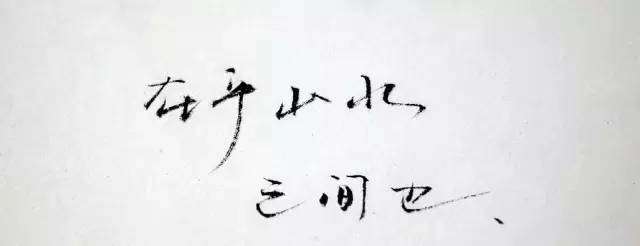 在乎山水
之间也、